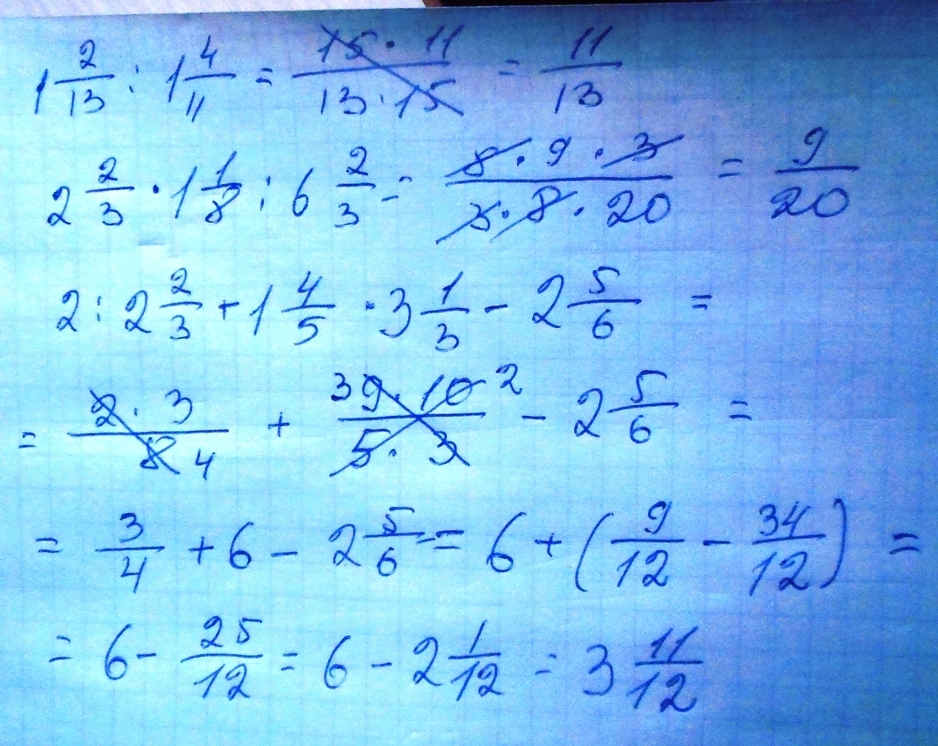 1 2/13 : 1 4/11 = 15·11/13·15 = 11/13
2 2/3 · 1 1/8 : 6 2/3 = 8·9·3/3·8·20 = 9/20
2 : 2 2/3 + 1 4/5 · 3 1/3 - 2 5/6 =
= 2·3/8 4 + 3 9·10 2/5·3 - 2 5/6 =
= 3/4 + 6 - 2 5/6 = 6 + (9/12 - 34/12) =
= 6 - 25/12 = 6 - 2 1/12 = 3 11/12